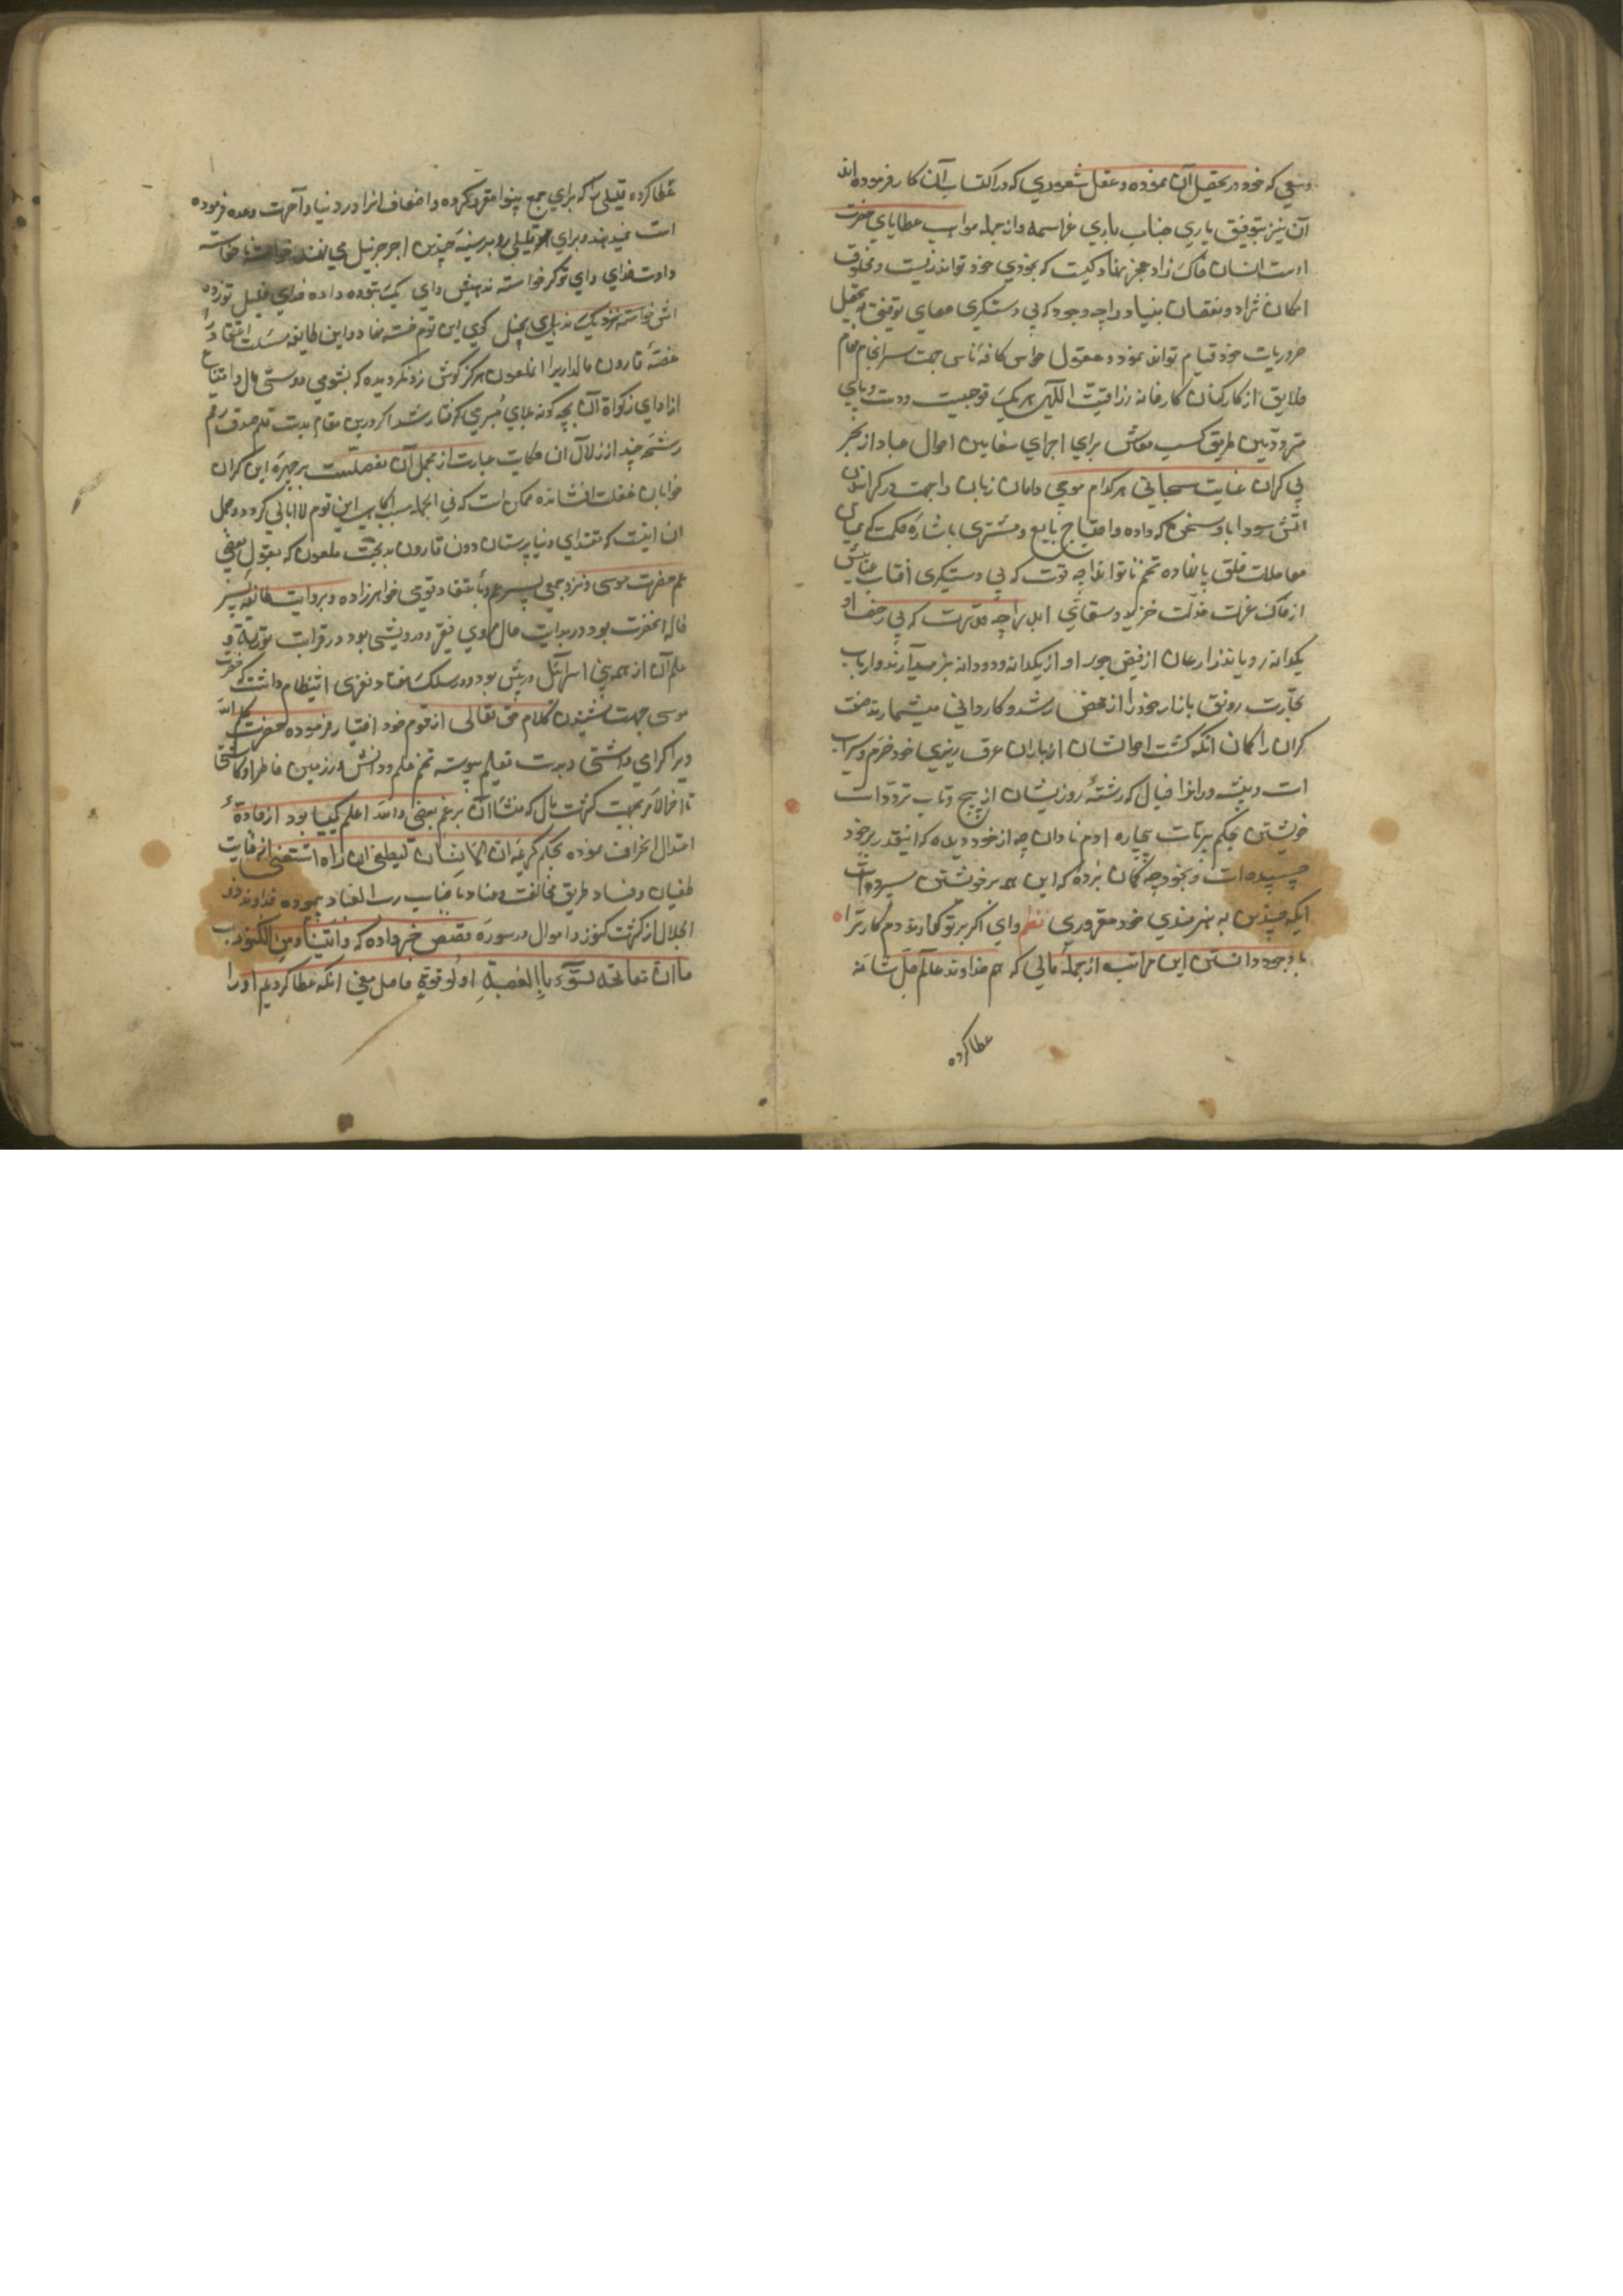 وسعی که خود در تحصیل آن نموده و عقل و شعوری که در اکتساب آن کار فرموده اند
آن نیز بتوفیق یاری جناب باری عز اسمه و از جمله مواهب عطایای حضرت
اوست انسان خاک زاد عجز نهاد کیست که بخودی خود تواند زیست و مخلوق
امکان نژاد و نقصان بنیاد را چه وجود که بی دستگیری عصای توفیق بتحصیل
ضروریات خود قیام تواند نمود و عقول حواس کافه ناس جهت سرانجام مهام
خلایق از کارکنان کارخانه رزاقیت الهی هر یک توجهیست و دست و پای
متردّدین طریق کسب معاش برای اجرای سفاین احوال عباد از بحر
بی کران عنایت سبحانی هر کدام موجی دامان زبان را جهت در گرانیدن
آتش سودا باد سخن که داده و احتیاج بایع و مشتری باشاره حکمت که میان
معاملات خلق پا نهاده تخم ناتوان را چه قوت که بی دستگیری آفتاب عنایتش
از خاک عزلت مذلت خیزد و سقای ابر را چه قدرت که بی رضای او
یکدانه رویاند زارعان از فیض جود او از یکدانه و دو دانه برمیدارند و ارباب
تجارت رونق بازار خود را از محض رشد و کاردانی میشمارند صنعت
گران را گمان آنکه کشت احوالشان از باران عرق ریزی خود خرم و سیراب
است و پیشه وران را خیال که رشتهٔ روزیشان از پیچ و تاب تردّدات
خویشتن محکم بر تاب بیچاره آدم نادان چه از خود دیده که اینقدر بر خود
چسپیده است و بخود چه گمان برده که این همه بر خویشتن سپرده است
ایکه چنین به هنرمندی خود مغروری نظم وای اگر بر تو گذارند دم کار ترا
با وجود دانستن این مراتب از جمله مالی که هم خداوند عالم جلّ شانه
عطا کرده
عطا کرده قلیلی را که برای جمع بینوا مقرر کرده و اضعاف آنرا در دنیا و آخرت وعده فرموده
است نمیدهند و برای هر قلیلی رو بر سینهٔ چندین اجر جزیل می نهند
داده خدای رای تو گر خواسته ندهیش وای یک بتوده داده خدای قلیل توزده
اش خواسته نزدیک ندیدی بخیل گوی این قوم خفته نهاد و این طایفه سست اعتقاد را
قصهٔ قارون مالدار را آن ملعون هرگز گوش زد نگردیده که بشومی دوستی مال و امتناع
از ادای زکواة آن بچه گونه بلای مبرمی گرفتار شد اگر درین مقام بدست قلم صدق رقم
رشحهٔ چند از زلال آن حکایت عبارت از مجمل آن مفصلست بر چهرهٔ این گران
خوابان غفلت افشانده ممکن است که فی الجمله سبب آگاهی این قوم لاابالی گردد و مجمل
آن اینست که مقتدای دنیا پرستان دون قارون بدبخت ملعون که بقول بعضی
عم حضرت موسی و نزد جمعی پسر عم و باعتقاد قومی خواهرزاده و بروایت طائفه پسر
خاله آنحضرت بود در بدایت حال وی فقیر و درویشی بود در قرائت توریة و
علم آن از همه بنی اسرائیل در پیش بود و در سلک هفتاد نفری انتظام داشت که حضرت
موسی جهت شنیدن کلام حق تعالی از قوم خود اختیار فرموده حضرت کلیم الله
ویرا گرامی داشتی و بدست تعلیم پیوسته تخم علم و دانش در زمین خاطر او کاشتی
تا آخر الامر بجهت کثرت مال که منشأ آن بر زعم بعضی والله اعلم کیمیا بود از جادهٔ
اعتدال انحراف نموده بحکم کریمه ان الانسان لیطغی ان راه استغنی از غایت
طغیان و فساد طریق مخالفت و عناد با جناب رب العباد پیموده خداوند ذو
الجلال از کثرت کنوز و اموال در سوره قصص خبر داده که و آتیناه من الکنوز
ما ان مفاتحه لتنوء بالعصبة اولو قوة حاصل معنی آنکه عطا کردیم او را